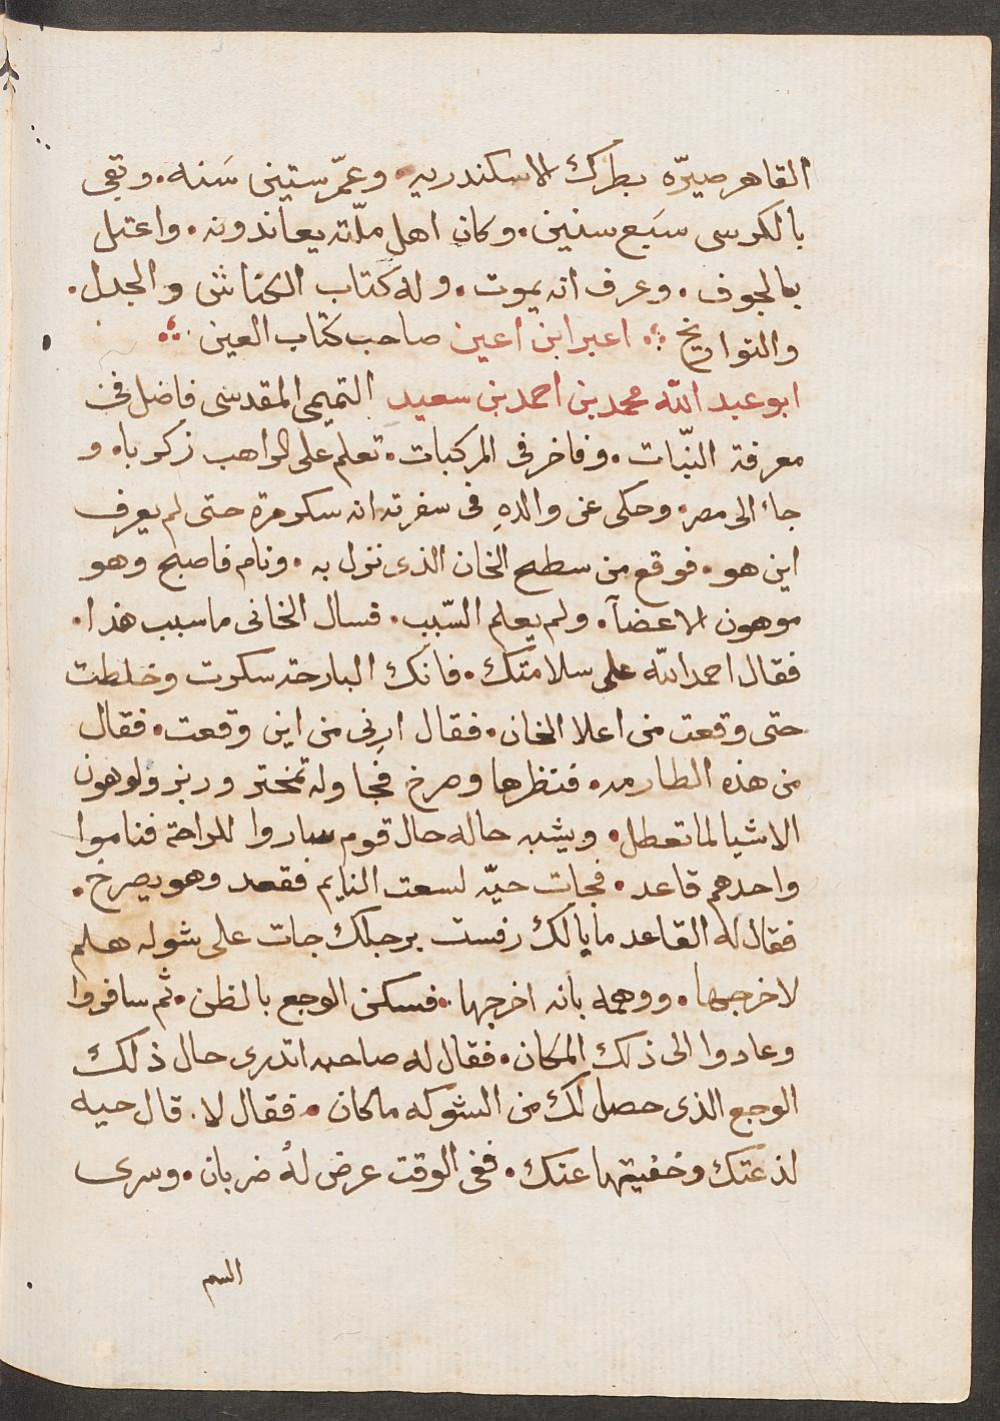 القاهر صيرّه بطرك الاسكندريه. وعمّر ستين سَنه. وبقى
بالكرسى سَبع سنين. وكان اهل ملّته يعاندونه. واعتل
بالجوف. وعرف انه يموت. وله كتاب الكناش والجدل.
والتواريخ ؞ اعير ابن اعين صاحب كتاب العين ؞
ابو عبد الله محمد بن احمد بن سعيد التميمى المقدسى فاضل فى
معرفة النبّات. وفاخر فى المركبات. تعلم على الراهب زكرياه و
جاء الى مصر. وحكى عن والدهِ فى سفرته انه سكر مرة حتى لم يعرف
اين هو. فوقع من سطح الخان الذى نزل به. ونام فاصبح وهو
موهون الاعضآء. ولم يعلم السّبب. فسال الخانى ما سبب هذا.
فقال احمد الله على سلامتك. فانك البارحة سكرت وخلطت
حتى وقعت من اعلا الخان. فقال ارِنى من اين وقعت. فقال
من هذه الطارمه. فنظرها وصرخ فجا وله تمختر وربز ولوهون
الاشيا لما تعطل. ويشبه حاله حال قوم ساروا للراحة فناموا
واحدهم قاعد. فجات حيّه لسعت النايم فقعد وهو يصرخ.
فقال له القاعد ما بالك رفست برجلك جات على شوكه هلم
لاخرجها. ووهمه بانه اخرجها. فسكن الوجع بالظن. ثم سافروا
وعادوا الى ذلك المكان. فقال له صاحبه اتدرى حال ذلك
الوجع الذى حصل لك من الشوكه ما كان. فقال لا. قال حيه
لذعتك وخفيتها عنك. ففى الوقت عرض لهُ ضربان. وسرى
السم